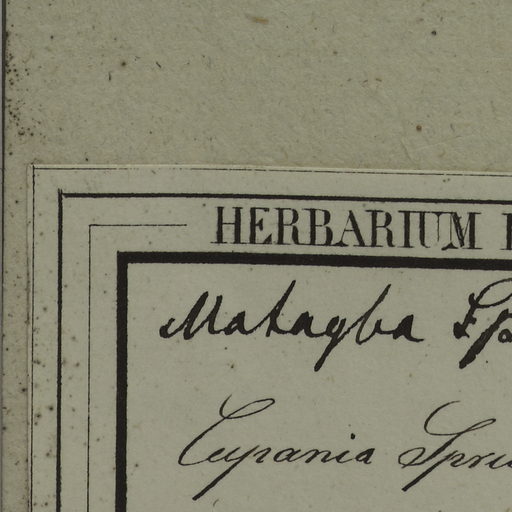 HERBARIUM
Matagba
Cupania